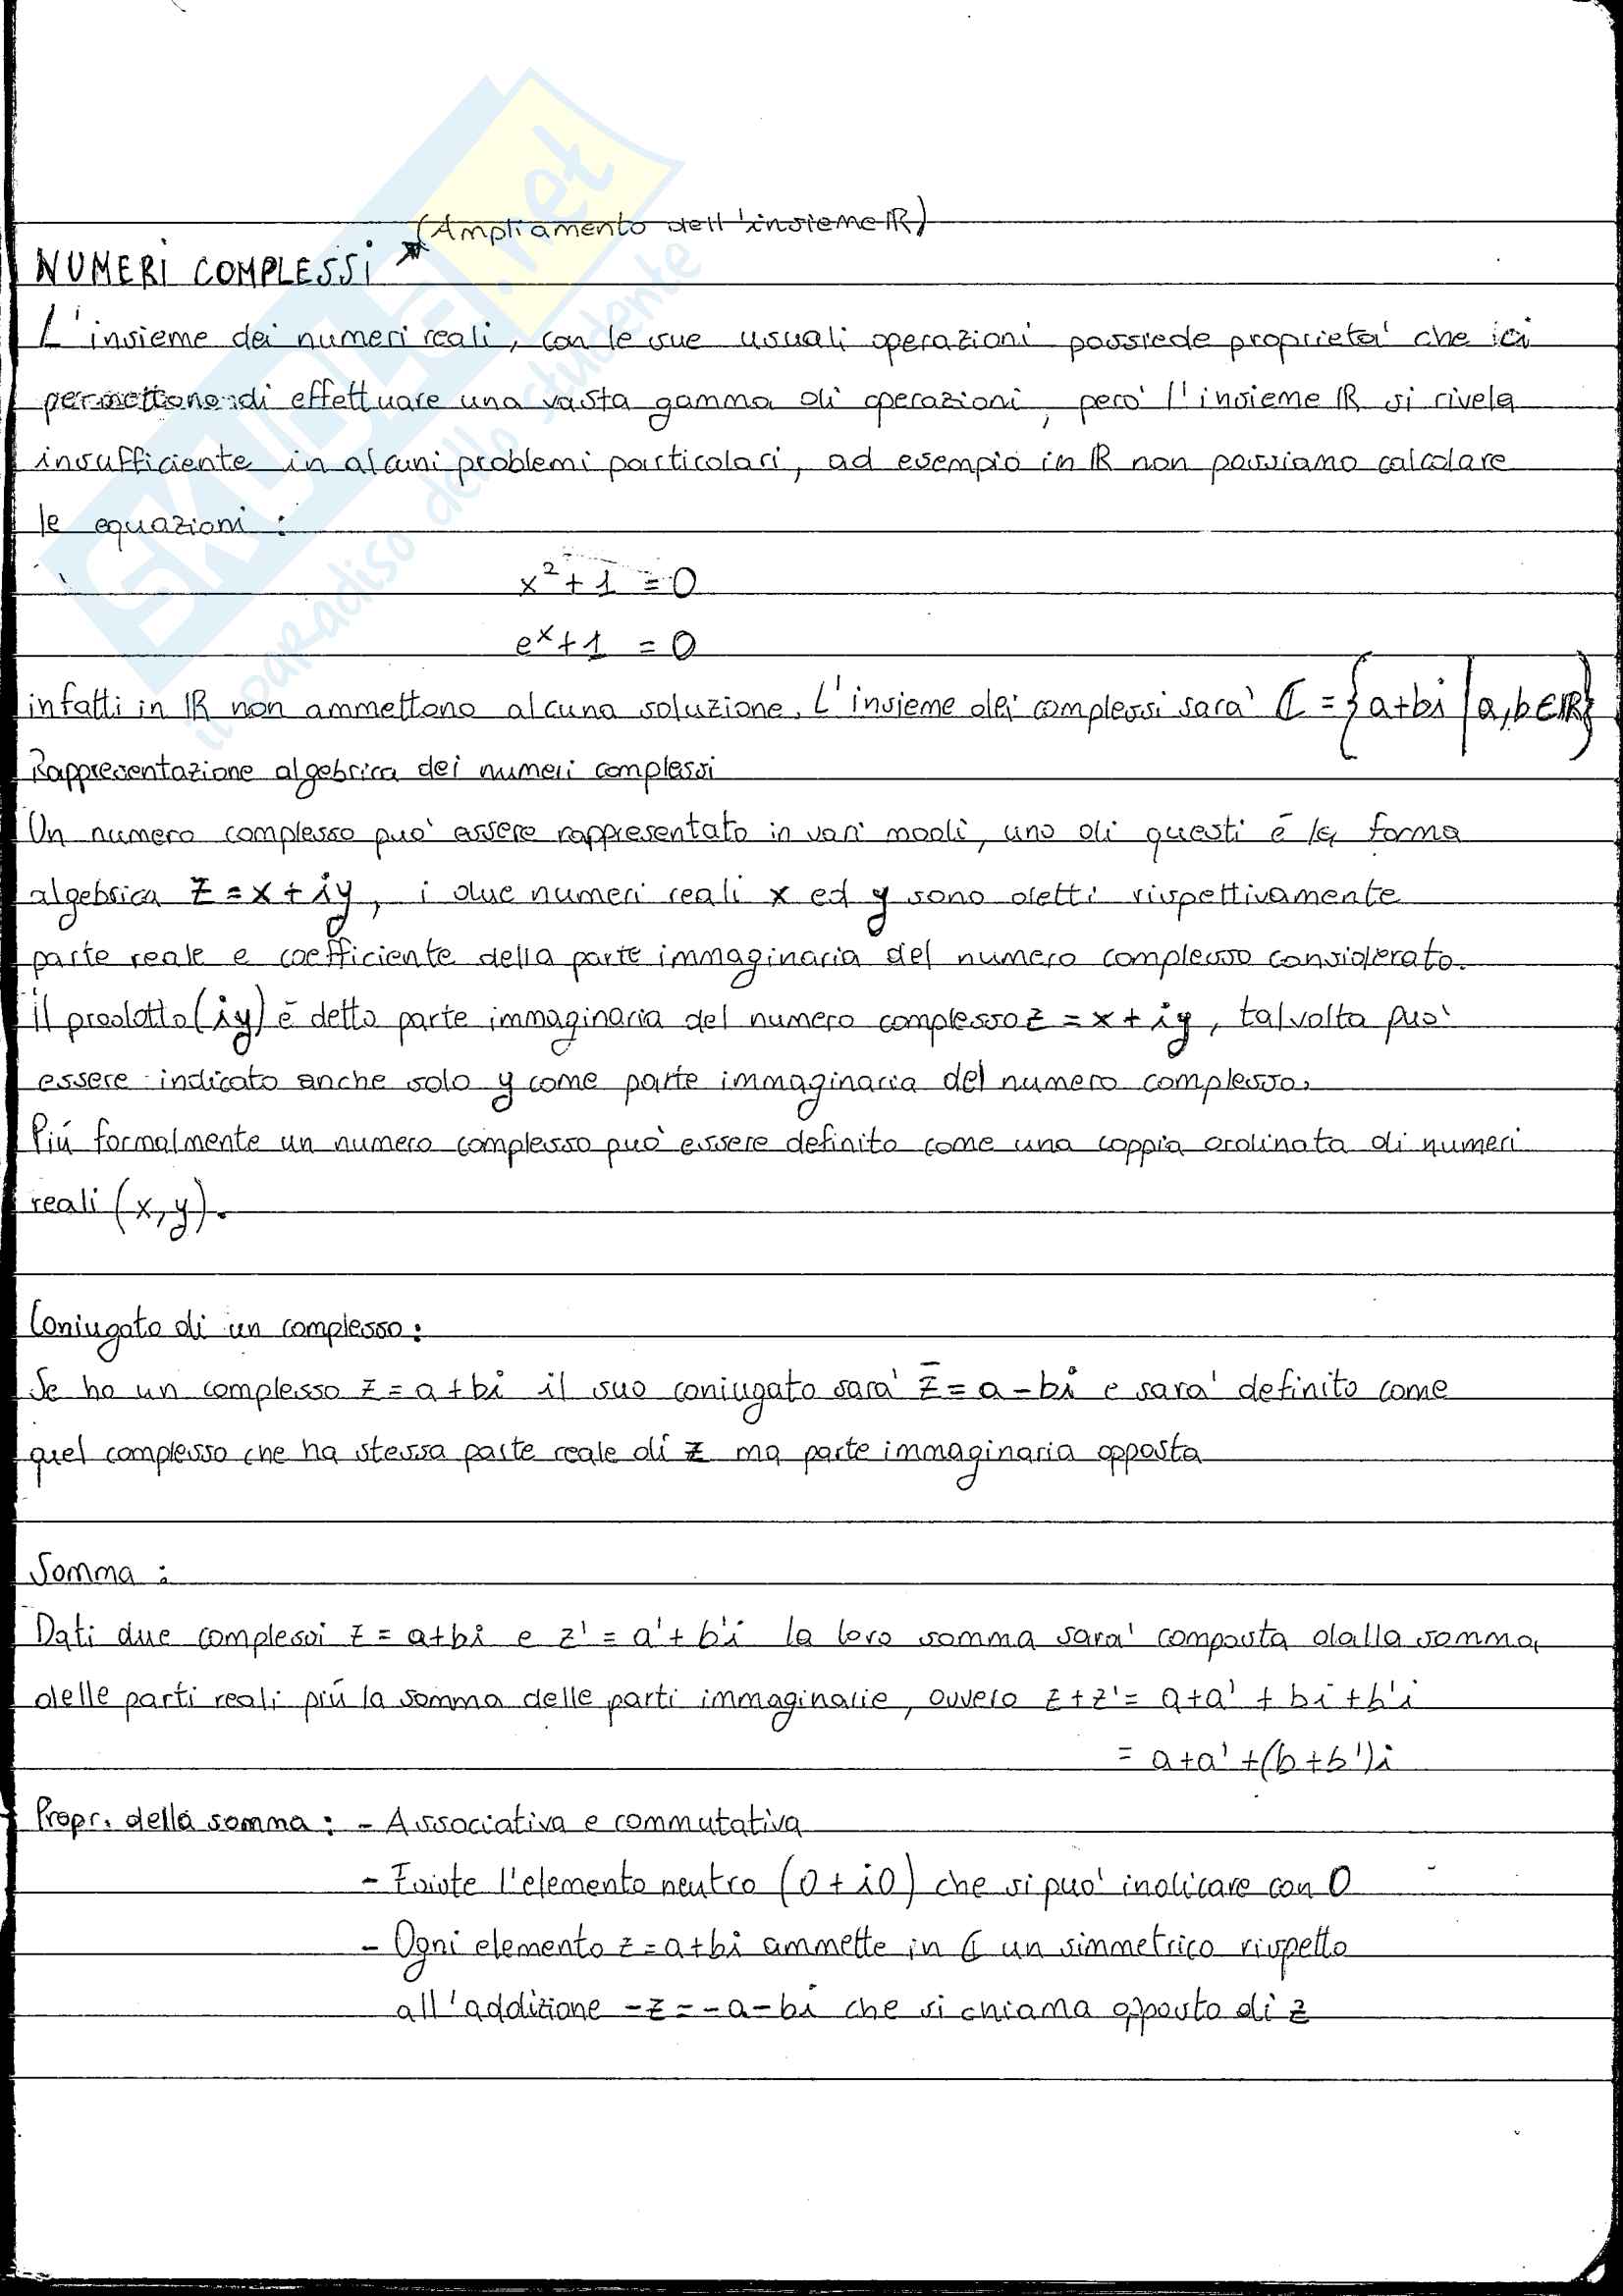 (Ampliamento dell'insieme ℝ)
NUMERI COMPLESSI
L'insieme dei numeri reali, con le sue usuali operazioni possiede proprieta' che ci
permettono di effettuare una vasta gamma di operazioni, pero' l'insieme ℝ si rivela
insufficiente in alcuni problemi particolari, ad esempio in ℝ non possiamo calcolare
le equazioni:
x²+1 = 0
eˣ+1 = 0
infatti in ℝ non ammettono alcuna soluzione. L'insieme dei complessi sara' ℂ = {a+bi | a,b∈ℝ}
Rappresentazione algebrica dei numeri complessi
Un numero complesso puo' essere rappresentato in vari modi, uno di questi è la forma
algebrica z = x + iy, i due numeri reali x ed y sono detti rispettivamente
parte reale e coefficiente della parte immaginaria del numero complesso considerato.
il prodotto (iy) è detto parte immaginaria del numero complesso z = x + iy, talvolta puo'
essere indicato anche solo y come parte immaginaria del numero complesso.
Piú formalmente un numero complesso puo' essere definito come una coppia ordinata di numeri
reali (x,y).
Coniugato di un complesso:
Se ho un complesso z = a + bi il suo coniugato sara' z̄ = a - bi e sara' definito come
quel complesso che ha stessa parte reale di z ma parte immaginaria opposta
Somma:
Dati due complessi z = a+bi e z' = a'+ b'i la loro somma sara' composta dalla somma
delle parti reali piú la somma delle parti immaginarie, ovvero z+z' = a+a' + bi+b'i
= a+a' +(b+b')i
Propr. della somma: - Associativa e commutativa
- Esiste l'elemento neutro (0 + i0) che si puo' indicare con 0
- Ogni elemento z = a+bi ammette in ℂ un simmetrico rispetto
all'addizione -z = -a-bi che si chiama opposto di z
SKUOLA.net
il paradiso dello studente